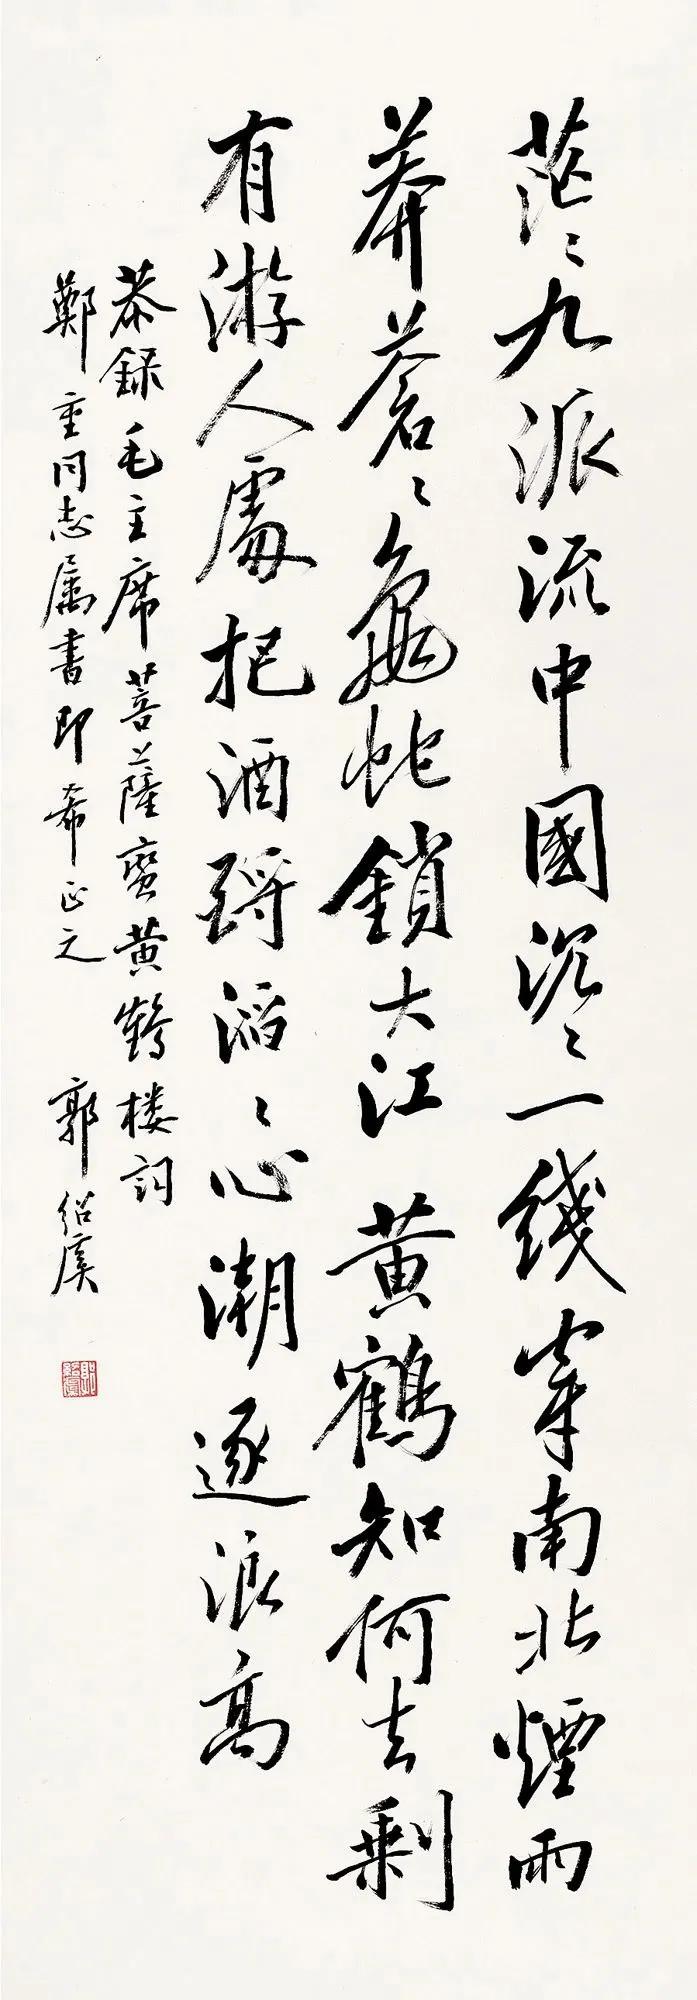 茫々九派流中國沉々一綫穿南北煙雨
莽蒼々龜蛇鎖大江黄鶴知何去剩
有游人處把酒酹滔々心潮逐浪高
恭録毛主席菩薩蛮黄鹤楼詞
鄭重同志属書即希正之 郭绍虞
郭紹虞